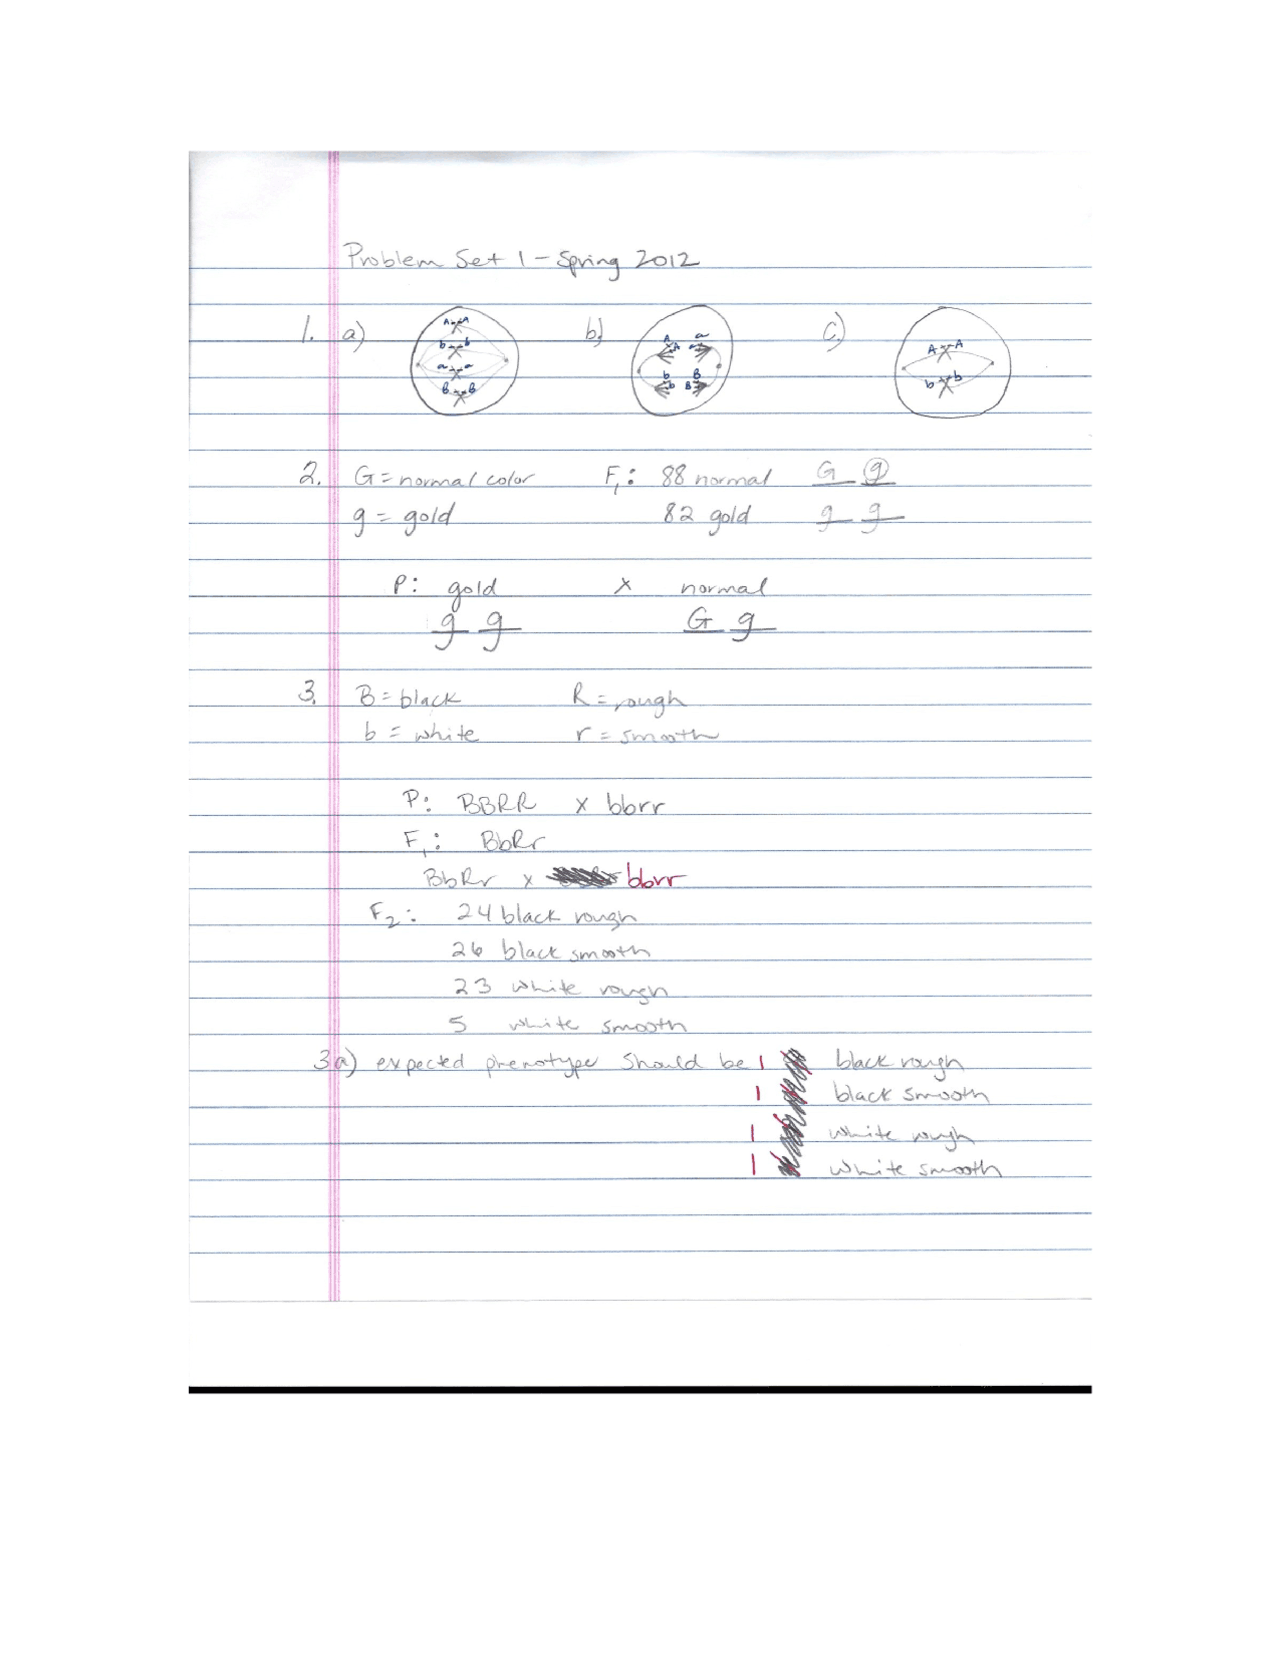 Problem Set 1 - Spring 2012
1. a) b) c)
A A
b b
a a
B B
A A a a
b b B B
A A
b b
2. G = normal color F1: 88 normal G g
g = gold 82 gold g g
P: gold x normal
g g G g
3. B = black R = rough
b = white r = smooth
P: BBRR x bbrr
F1: BbRr
BbRr x bbrr
F2: 24 black rough
26 black smooth
23 white rough
5 white smooth
3a) expected phenotype should be 1 black rough
1 black smooth
1 white rough
1 white smooth